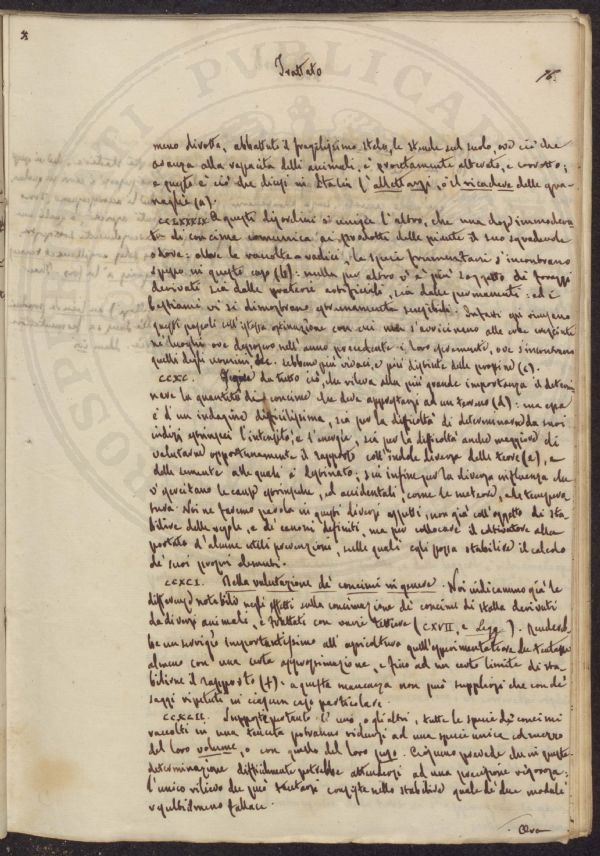 Trattato
76.
meno divolta, abbattuto il fragilissimo stelo, le stende sul suolo, ove ciò che
avanza alla rapacità delli animali, è prontamente alterato, e corrotto;
e questo è ciò che dicesi in Italia l'allettarsi, o il ricadere delle gra-
naglie (a).
CCLXXXIX. A questi disordini si unisce l'altro, che una dose immodera
ta di concime comunica ai prodotti delle piante il suo
odore: oltre le raccolte a radici, le specie frumentarii s'incontrano
spesso in questo caso (b): nulla per altro vi è più soggetto di foraggi
derivati sia dalle praterie artificiali, sia dalle permanenti: ed i
bestiami vi si dimostrano estremamente sensibili. Infatti essi
questi pascoli coll'istessa ostinazione con cui non s'avvicinano alle erbe cresciute
ne' luoghi ove deposero nell'anno precedente i loro escrementi, ove s'incontrano
quelli degli uomini sebbene più vivaci, e più distinte delle prossime (c).
CCXC. da tutto ciò, che rileva alla più grande importanza il determi
nare la quantità di concime che deve apprestarsi ad un terreno (d): ma essa
è d'un indagine difficilissima, sia per la difficoltà di determinare da suoi
indizj estrinseci l'intensità, e l'energia, sia per la difficoltà anche maggiore di
valutarne opportunamente il rapporto coll'indole diversa delle terre (e), e
delle semente alle quali è destinato; sia infine per la diversa influenza che
v'esercitano le cause estrinseche, ed accidentali, come le meteore, e la tempera
tura. Noi ne faremo parola in questi diversi aspetti, non già coll'oggetto di sta-
bilire delle regole, e de' canoni definiti, ma per collocare il coltivatore alla
portata d'alcune utili prevenzioni, sulle quali egli possa stabilire il calcolo
de' suoi proprj elementi.
CCXCI. Della valutazione de' concimi in genere. Noi indicammo già le
differenze notabili negli effetti sulla concimazione de' concimi di stalla derivati
da diversi animali, e trattati con varie lettiere (CXVII, e Segg.). Renderebbe
un servigio importantissimo all'agricoltura quell'sperimentatore che tentasse
almeno con una certa approssimazione, e fino ad un certo limite di sta-
bilirne il rapporto (f). a questa mancanza non può supplirsi che con de'
saggi ripetuti in ciascun caso particolare.
CCXCII. Supposto pertanto l'uno, o gli altri, tutte le specie de' concimi
raccolti in una tenuta potranno ridursi ad una specie unica col mezzo
del loro volume, o con quello del loro peso. Ciascuno prevede che in questa
determinazione difficilmente potrebbe attendersi ad una precisione rigorosa:
l'unico rilievo che può trattarsi consiste nello stabilire quale de' due modi
risulti il meno fallace.
Ora